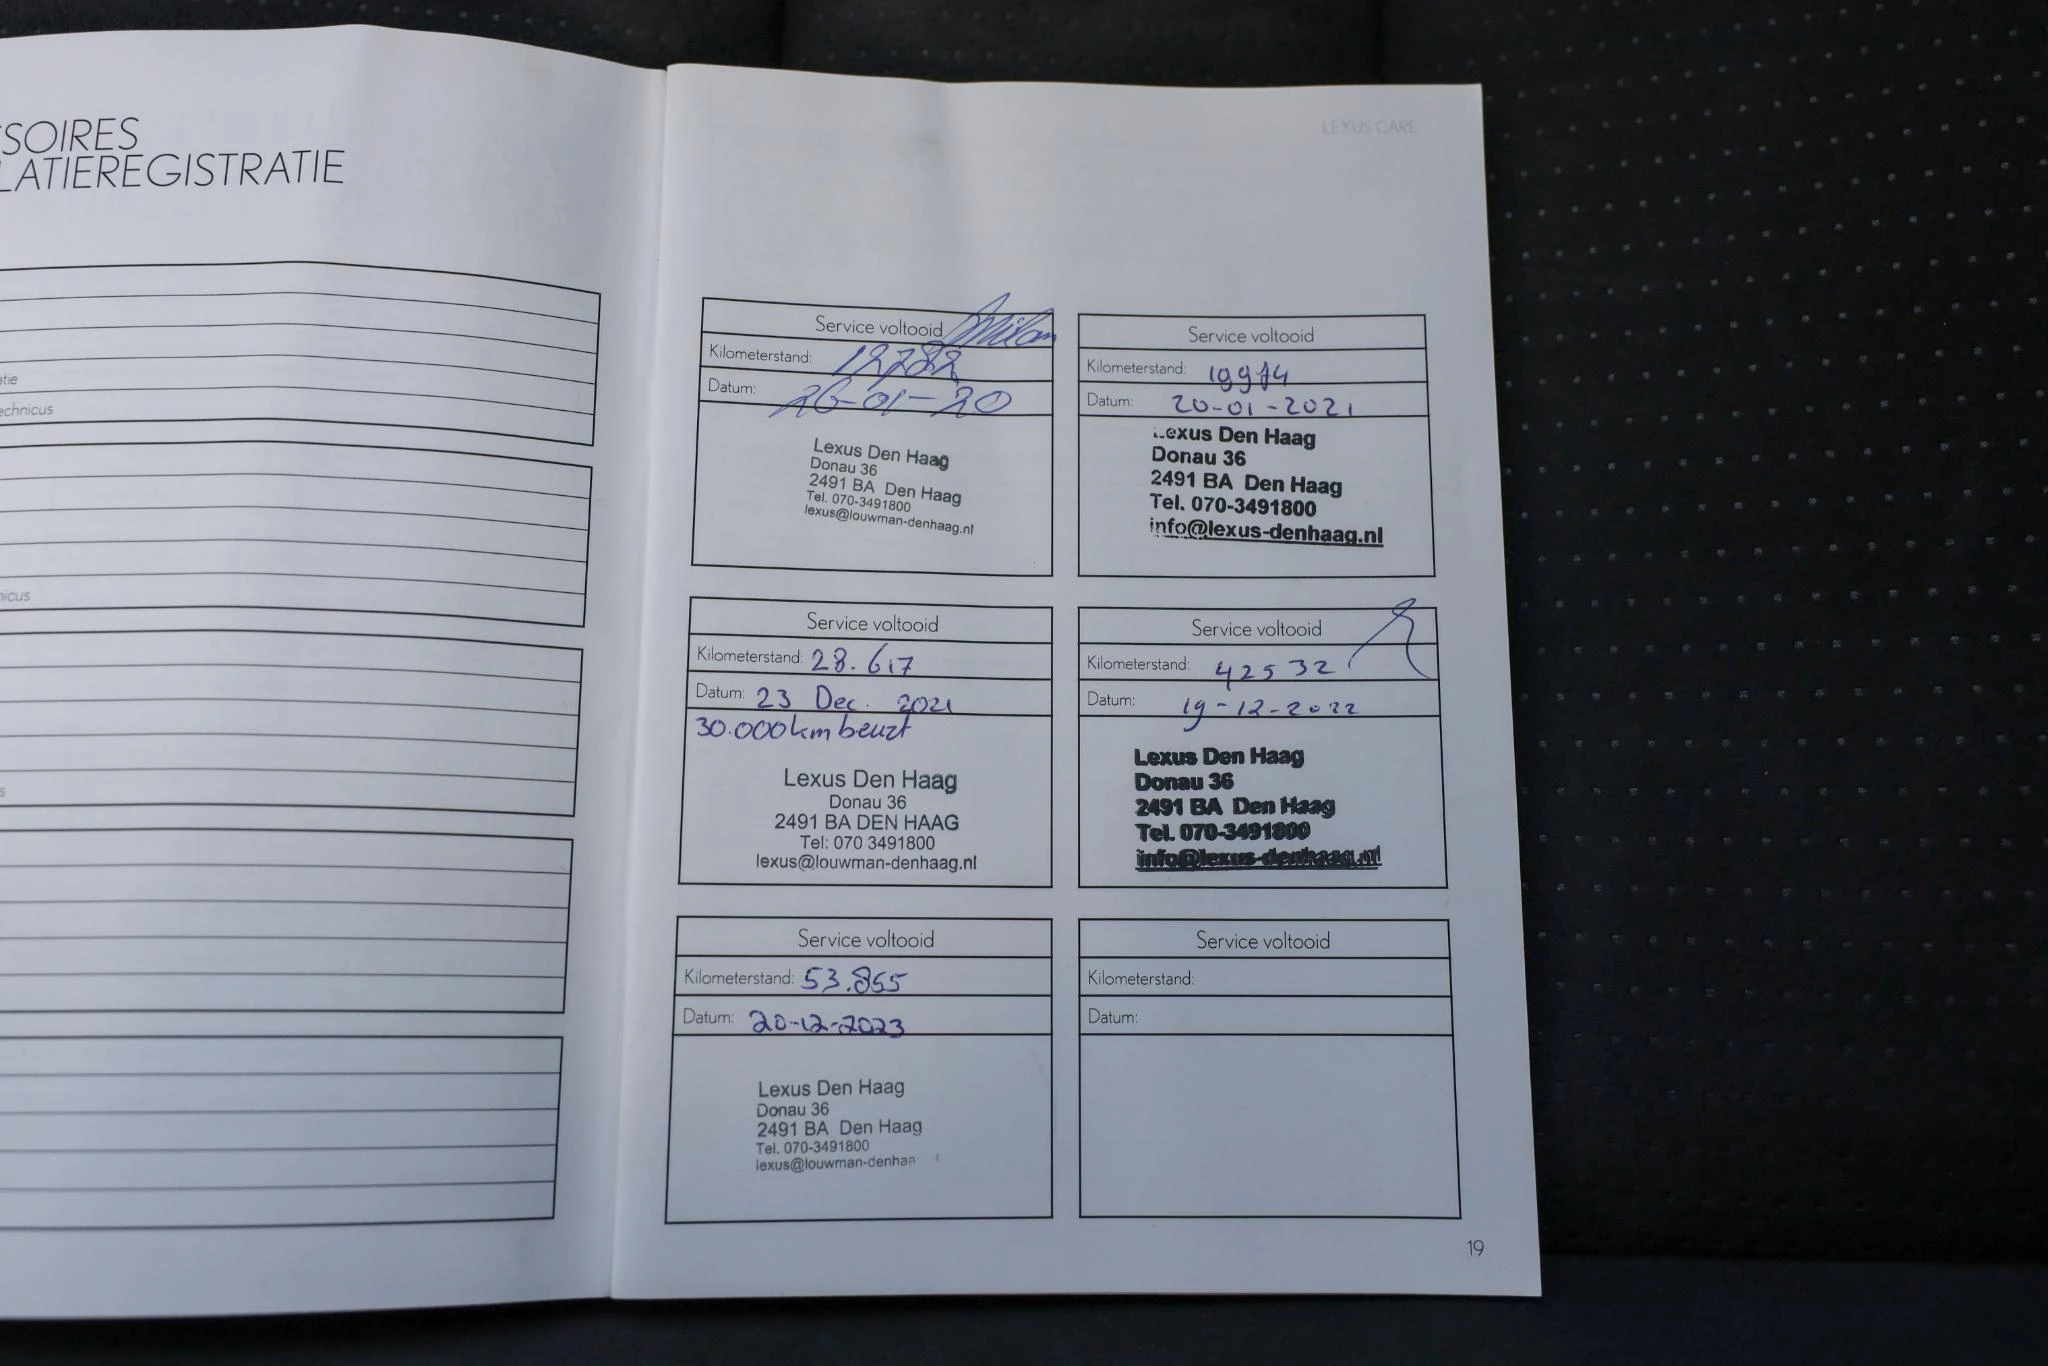 SSOIRES
LATIEREGISTRATIE
atie
echnicus
nicus
s
LEXUS CARE
Service voltooid
Kilometerstand: 12782
Datum: 26-01-20
Lexus Den Haag
Donau 36
2491 BA Den Haag
Tel. 070-3491800
lexus@louwman-denhaag.nl
Service voltooid
Kilometerstand:
Datum: 20-01-2021
Lexus Den Haag
Donau 36
2491 BA Den Haag
Tel. 070-3491800
info@lexus-denhaag.nl
Service voltooid
Kilometerstand: 28.617
Datum: 23 Dec. 2021
30.000km beurt
Lexus Den Haag
Donau 36
2491 BA DEN HAAG
Tel: 070 3491800
lexus@louwman-denhaag.nl
Service voltooid
Kilometerstand: 42532
Datum: 19-12-2022
Lexus Den Haag
Donau 36
2491 BA Den Haag
Tel. 070-3491800
info@lexus-denhaag.nl
Service voltooid
Kilometerstand: 53.855
Datum: 20-12-2023
Lexus Den Haag
Donau 36
2491 BA Den Haag
Tel. 070-3491800
lexus@louwman-denhaa
Service voltooid
Kilometerstand:
Datum:
19